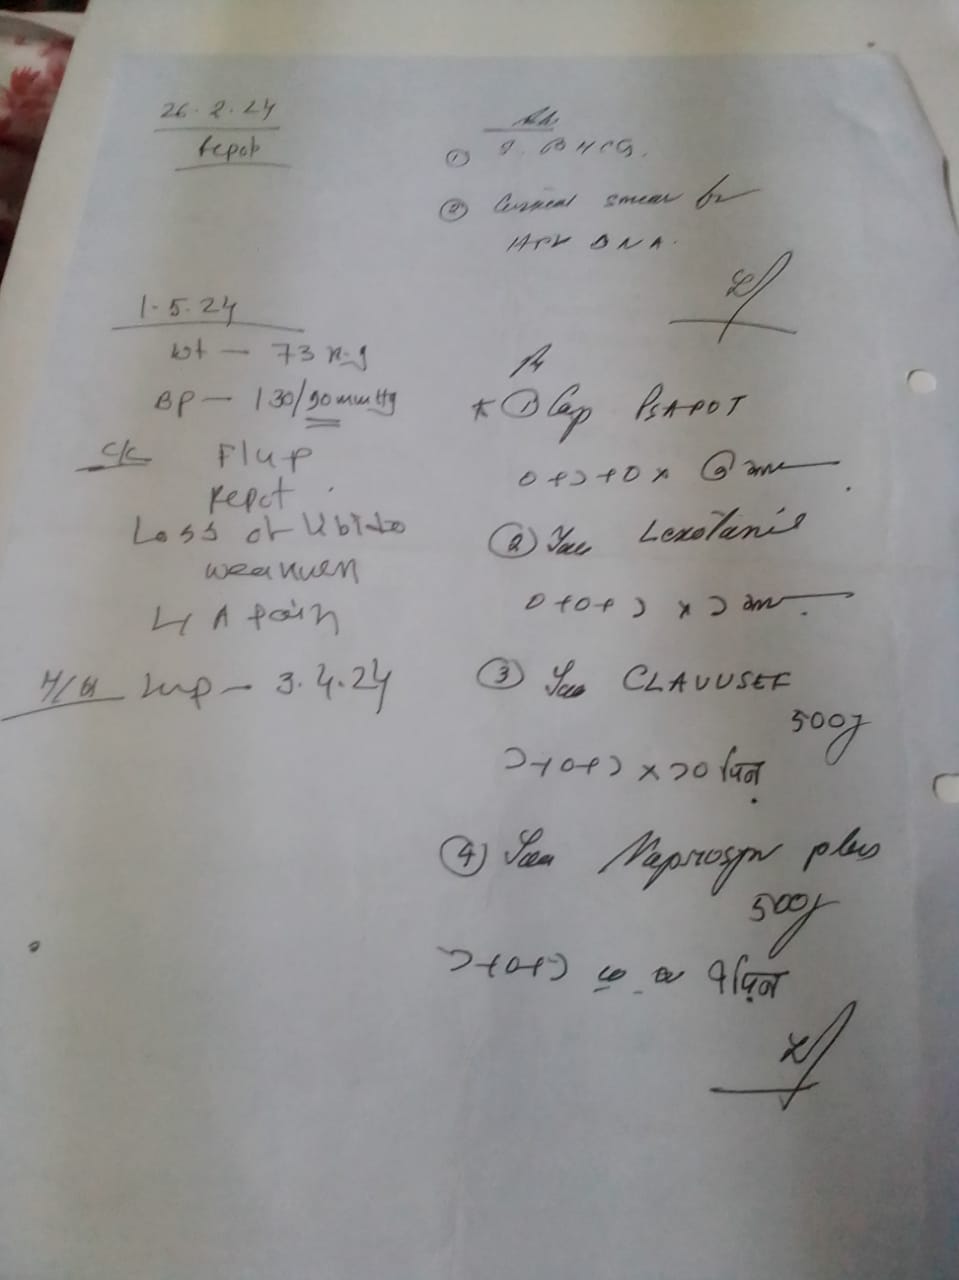 26.2.24
Repot
①
② Cervical smear for
HPV DNA.
1.5.24
wt — 73 kg
BP — 130/90 mmHg
C/C Flup
Repot
Loss of Libido
weaknen
LA pain
M/H Lmp — 3.4.24
Rx
* ① Cap PSAPOT
০+১+০ x
② Tab Lexotanil
০+০+১ x ১ মাস
③ Tab CLAVUSEF
500g
১+০+১ x ১০ দিন
④ Tab Naprosyn plus
500g
১+০+১ ৭ দিন